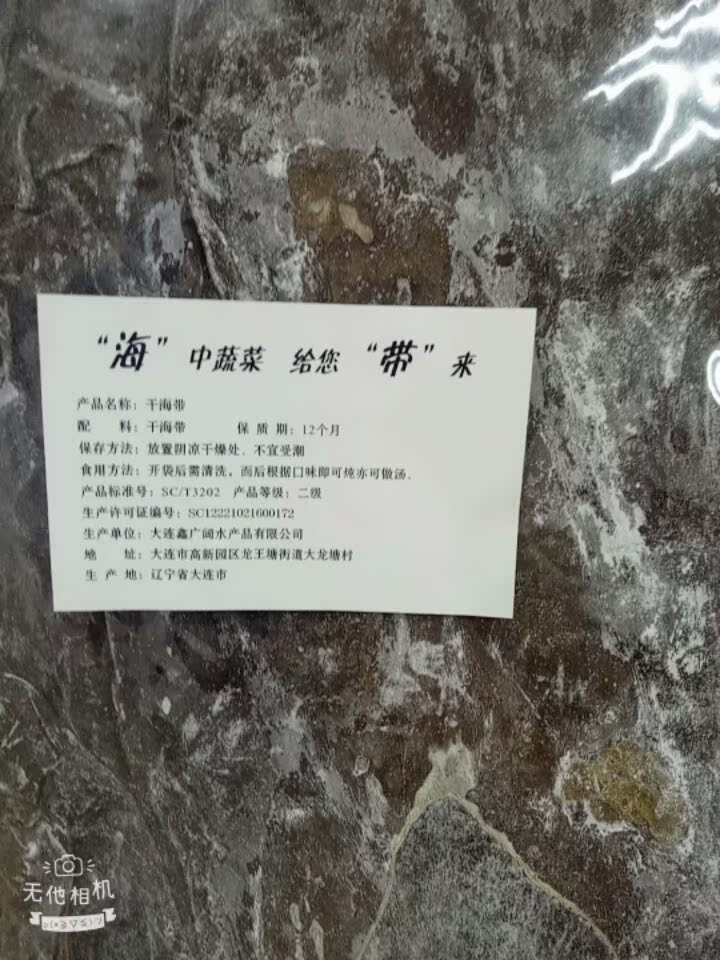 “海”中蔬菜 给您“带”来
产品名称：干海带
配 料：干海带 保 质 期：12个月
保存方法：放置阴凉干燥处、不宜受潮
食用方法：开袋后需清洗，而后根据口味即可炖亦可做汤。
产品标准号：SC/T3202 产品等级：二级
生产许可证编号：SC12221021600172
生产单位：大连鑫广阔水产品有限公司
地 址：大连市高新园区龙王塘街道大龙塘村
生 产 地：辽宁省大连市
无他相机